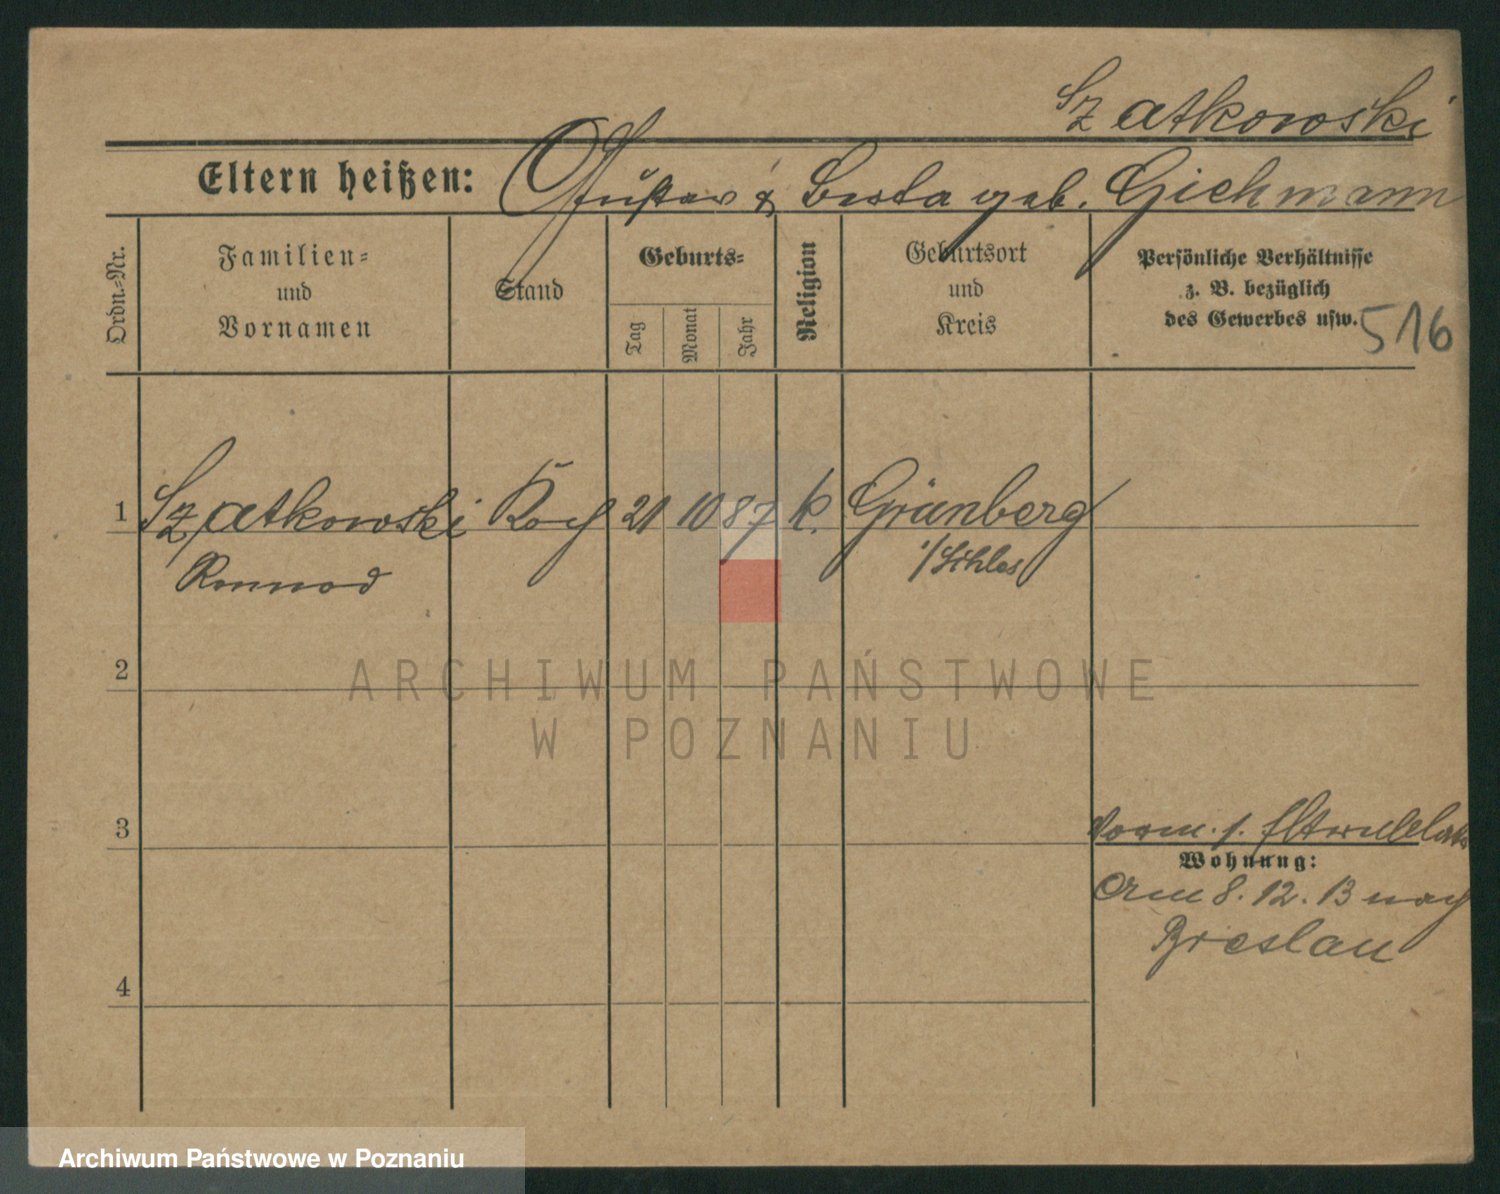 Szatkowski
Eltern heißen: Gustav & Berta geb. Gichmann
Ordn.-Nr.
Familien-
und
Vornamen
Stand
Geburts-
Tag
Monat
Jahr
Religion
Geburtsort
und
Kreis
Persönliche Verhältnisse
z. B. bezüglich
des Gewerbes usw.
516
1 Szatkowski Koch 21 10 87 k. Grünberg
Konrad i/Schles
2
3
Wohnung:
Am 8. 12. 13 nach
Breslau
4
ARCHIWUM PAŃSTWOWE
W POZNANIU
Archiwum Państwowe w Poznaniu